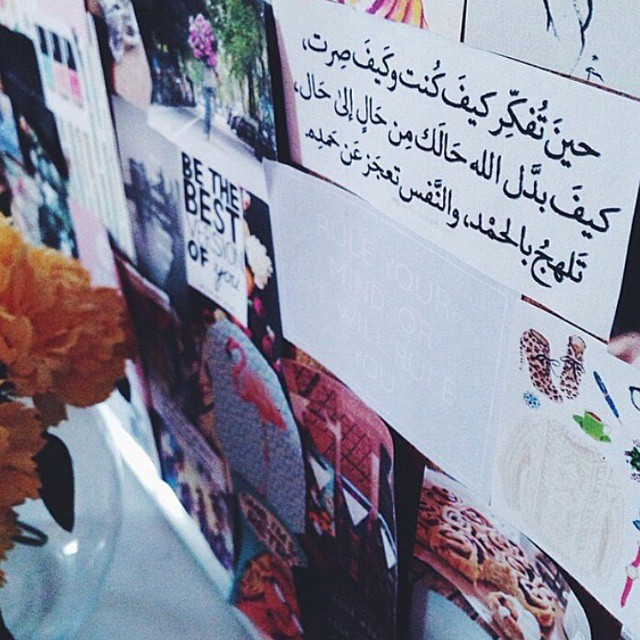 حينَ تُفكِّر كيفَ كُنت وكَيفَ صِرت،
كيفَ بدَّل الله حَالَك مِن حَالٍ إلىٰ حَال،
تَلهجُ بالحمْد، والنَّفس تعجَز عَن حَمدِه.
BE THE
BEST
VERSION
OF YOU
RULE YOUR
MIND OR
IT WILL RULE
YOU